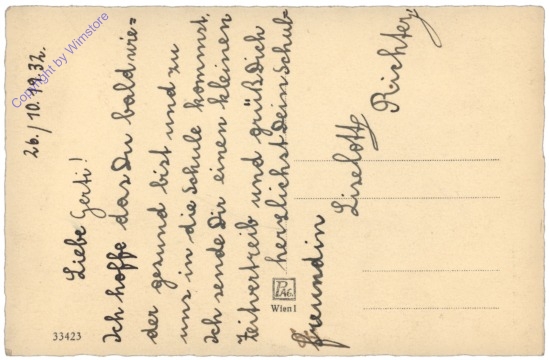 26./10. 1932.
Liebe Gerti!
Ich hoffe das Du bald wie=
der gesund bist und zu
uns in die Schule kommst.
Ich sende Dir einen kleinen
Zeitvertreib und grüß Dich
herzlichst Dein Schul=
freundin
Liselotte
Richter
PAG.
Wien I
33423
Copyright by Wimstore